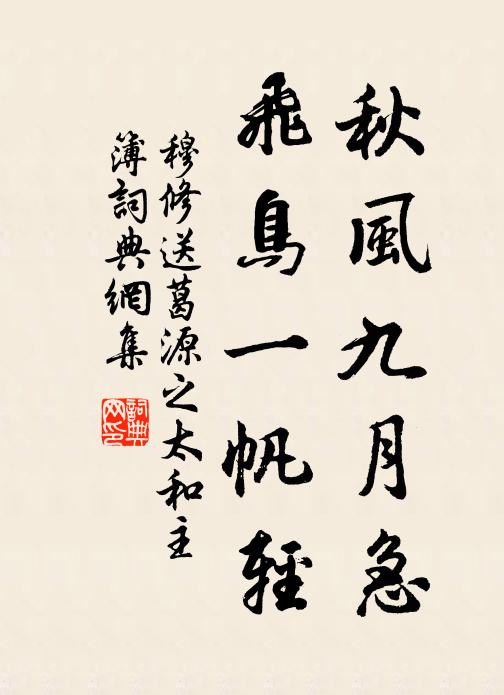 秋風九月急
飛鳥一帆輕
穆修送葛源之太和主
簿詞典網集
詞典
網印